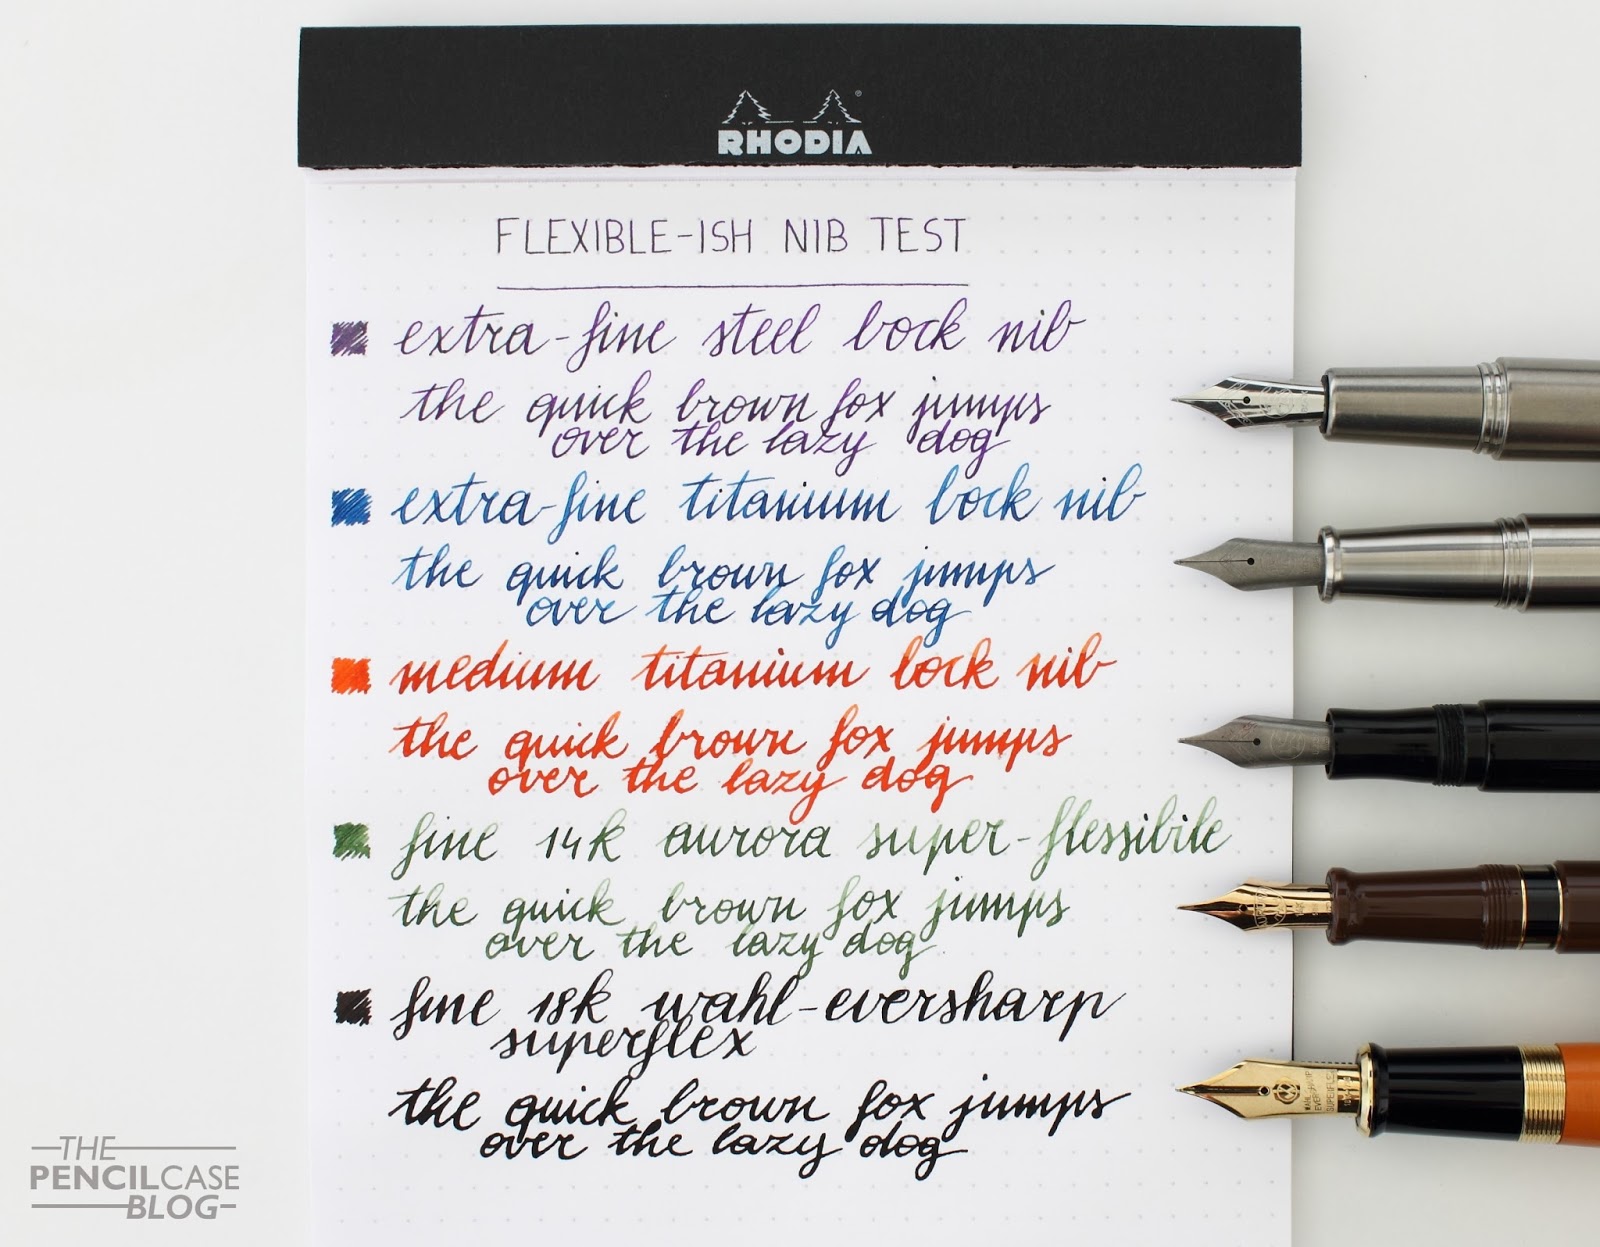 RHODIA
FLEXIBLE-ISH NIB TEST
extra-fine steel bock nib
the quick brown fox jumps
over the lazy dog
extra-fine titanium bock nib
the quick brown fox jumps
over the lazy dog
medium titanium bock nib
the quick brown fox jumps
over the lazy dog
fine 14k aurora super-flessibile
the quick brown fox jumps
over the lazy dog
fine 18k wahl-eversharp
superflex
the quick brown fox jumps
over the lazy dog
THE
PENCILCASE
BLOG